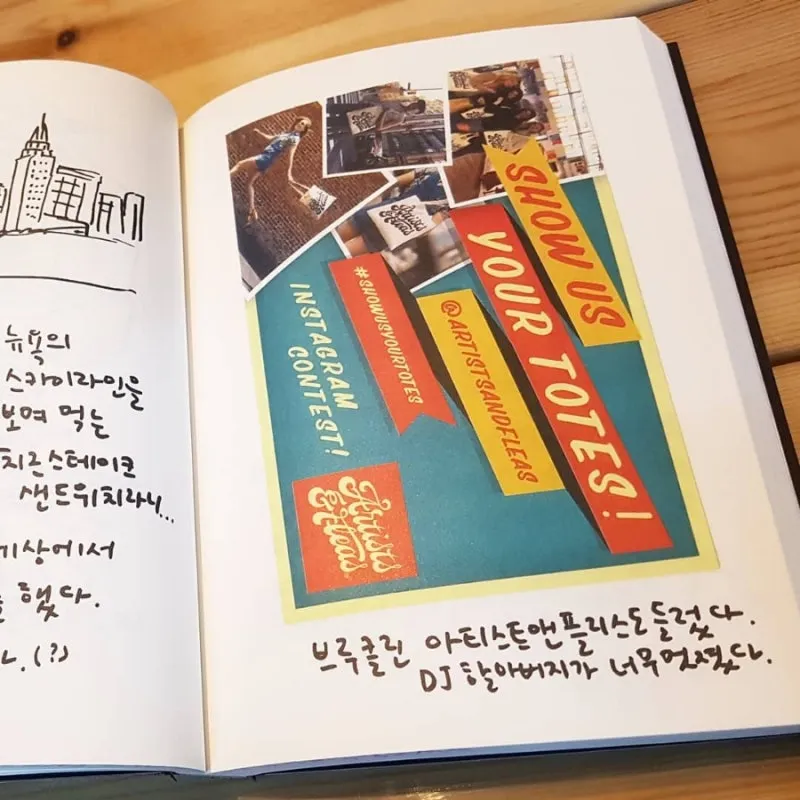 뉴욕의
스카이라인을
보며 먹는
치즈스테이크
샌드위치라니...
세상에서
했다.
(?)
SHOW US
YOUR TOTES!
@ARTISTSANDFLEAS
#SHOWUSYOURTOTES
INSTAGRAM
CONTEST!
Artists
& Fleas
브루클린 아티스트앤플리스도 들렀다.
DJ 할아버지가 너무 멋졌다.